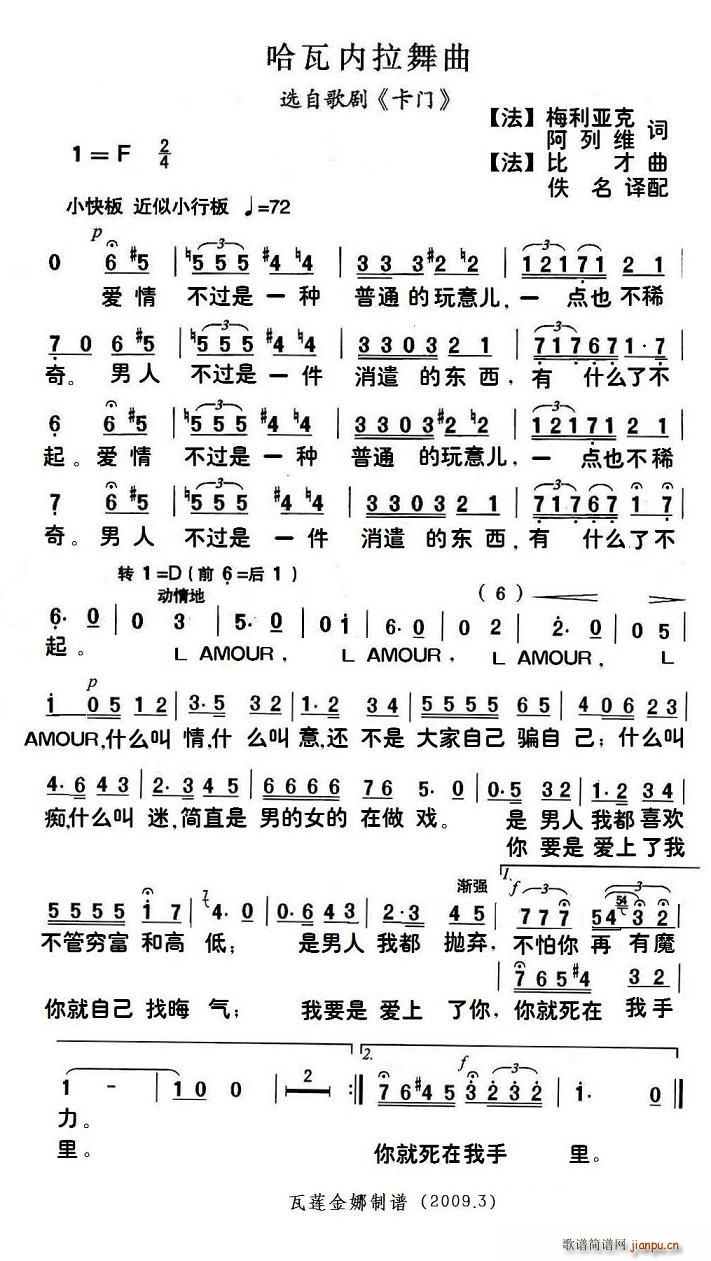 哈瓦内拉舞曲
选自歌剧《卡门》
【法】梅利亚克
阿列维 词
1=F 2/4
【法】比才 曲
佚名 译配
小快板 近似小行板 ♩=72
p
0 6 #5 | ♮5 5 5 #4 ♮4 | 3 3 3 #2 ♮2 | 1 2 1 7 1 2 1 |
爱情 不过是一种 普通的玩意儿,一 点也不稀
7 0 6 #5 | ♮5 5 5 #4 ♮4 | 3 3 0 3 2 1 | 7 1 7 6 7 1· 7 |
奇。男人 不过是一件 消遣 的东西,有 什么了不
6 6 #5 | ♮5 5 5 #4 ♮4 | 3 3 0 3 #2 ♮2 | 1 2 1 7 1 2 1 |
起。爱情 不过是一种 普通 的玩意儿,一 点也不稀
7 6 #5 | ♮5 5 5 #4 ♮4 | 3 3 0 3 2 1 | 7 1 7 6 7 1 7 |
奇。男人 不过是一件 消遣 的东西,有 什么了不
转 1=D(前 6=后 1)
动情地
(6)
6· 0 | 0 3 | 5· 0 | 0 1 | 6· 0 | 0 2 | 2· 0 | 0 5 |
起。 L AMOUR, L AMOUR, L AMOUR, L
p
1 0 5 1 2 | 3· 5 3 2 | 1· 2 3 4 | 5 5 5 5 6 5 | 4 0 6 2 3 |
AMOUR,什么叫 情,什 么叫意,还 不是 大家自己 骗自己;什么叫
4· 6 4 3 | 2· 3 4 5 | 6 6 6 6 7 6 | 5· 0 | 0· 5 3 2 | 1· 2 3 4 |
痴,什么叫 迷,简直是 男的女的 在做 戏。 是 男人我都喜欢
你 要是 爱上了我
渐强
1.
f
5 5 5 5 1 7 | 4· 0 | 0· 6 4 3 | 2· 3 4 5 | 7 7 7 5 4 3 2 |
不管穷富 和高 低; 是男人 我都 抛弃,不怕你 再 有魔
7 6 5 #4 3 2 |
你就自己 找晦 气; 我要是 爱上 了你,你就死在 我手
2.
f
1 - | 1 0 0 | 2 :|| 7 6 #4 5 3 2 3 2 | 1· 0 ||
力。
里。 你就死在我手 里。
瓦莲金娜制谱(2009.3)
歌谱简谱网
jianpu.cn